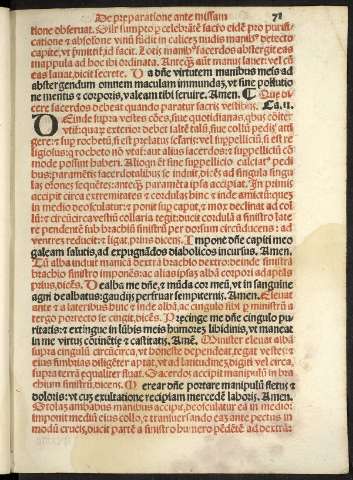 De preparatione ante missam 71
tione obseruat. His sumpto p celebrāte sacro
catione & absolone vinū fūdit in calice; nudis manib; detecto
capite, vt pmittit id facit. Locis manib; sacerdos abstergit eas
mappula ad hoc ibi ordinata. Anteq̄ aūt manus lauet: vel cū
eas lauat, dicit secrete. Da dñe virtutem manibus meis ad
abstergendum omnem maculam immundā; vt sine pollutione
mentis & corporis, valeam tibi seruire. Amen. ¶ Que dicere
sacerdos debeat quando paratur sacris vestib; Ca. ii.
Deinde supra vestes cōes, siue quotidianas,
exterior debet saltē talū, siue collū pedis attigere:
& sup rochetū, si est prelatus secularis: vel suppelliciū, si est religiosus:
& rocheto nō vtat: aut alias sacerdos: & suppelliciū cōmode
possint haberi. Alioqn & sine suppellicio
se induit, dicēs ad singula singulas
orones sequētes: anteq̄ paramēta ipsa accipiat. In primis
accipit circa extremitates & cordulas hinc & inde amictū; quē
in medio deosculatur: & ponit sup caput, & mox declinat ad collū:
& circūcirca vestiū collaria tegit: ducit cordulā a sinistro latere
pendentē sub brachiū sinistrū per dorsum circūducens: ad
ventrez reducit: & ligat, prius dicens. Impone dñe capiti meo
galeam salutis, ad expugnādos diabolicos incursus. Amen.
Tū alba induit manicā dextrā brachio dextro: deinde sinistrā
brachio sinistro imponēs: ac alias ipsā albā corpori adaptās
prius, dicēs. Dealba me dñe, & mūda cor meū, vt in sanguine
agni dealbatus: gaudijs perfruar sempiternis. Amen. Eleuat
ante & a lateribus hinc & inde albā, ac cingulū sibi p ministrū a
tergo porrecto se cingit, dicēs. Precinge me dñe cingulo puritatis:
& extingue in lūbis meis humorez libidinis, vt maneat
in me virtus cōtinētie & castitatis. Amē. Minister eleuat albā
supra cingulū circūcirca, vt honeste dependeat, tegat vestes: &
eius fimbrias diligēter aptat, vt ad latitudinez digiti vel circa,
supra terrā equaliter fluat. Sacerdos accipit manipulū in brachium
sinistrū, dicens. Merear dñe portare manipulū fletus &
doloris: vt cuz exultatione recipiam mercedē laboris. Amen.
Stolaz ambabus manibus accipit, deosculatur eā in medio:
imponit mediū eius collo, & transuersando eaz ante pectus in
modū crucis, ducit partē a sinistro humero pēdētē ad dextrā: